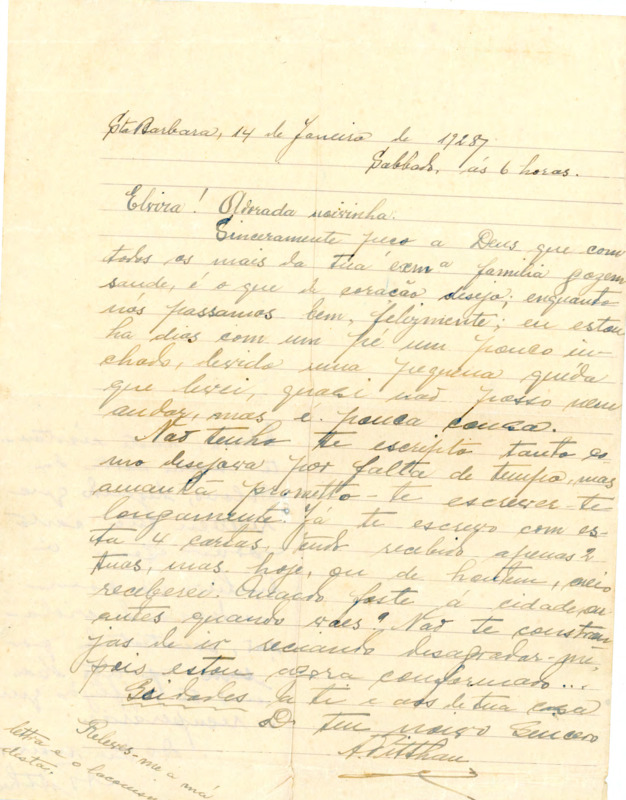 Sta Barbara, 14 de Janeiro de 1928
Sabbado, ás 6 horas.
Elvira! Adorada noivinha.
Sinceramente peço a Deus que com
todos os mais da tua exmª familia gozem
saude, é o que de coração desejo; enquanto
nós passamos bem, felizmente; eu estou
ha dias com um pé um pouco in-
chado, devido uma pequena queda
que levei, quasi não posso nem
andar, mas é pouca cousa.
Não tenho te escripto tanto co
mo desejava por falta de tempo, mas
amanhã prometto-te escrever-te
longamente. Já te escrevo com es-
ta 4 cartas, tendo recebido apenas 2
tuas, mas hoje, ou de hontem, creio
receberei. Quando foste á cidade, ou
antes quando vaes? Não te constran
jas de ir receiando desagradar-me
pois estou agora conformado...
Saudades a ti e aos de tua casa
Do teu noivo sincero
A. Pitthan
Releves-me a má
lettra e o laconismo
destas.